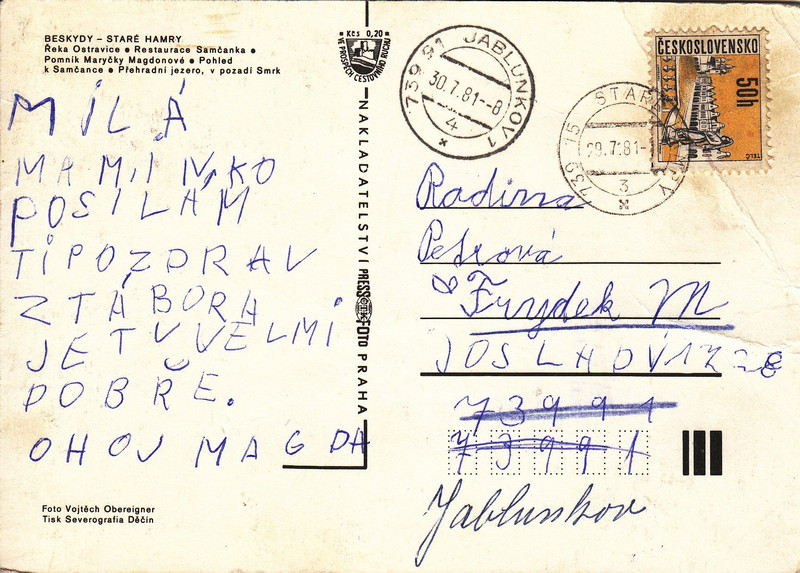 BESKYDY – STARÉ HAMRY
Řeka Ostravice • Restaurace Samčanka •
Pomník Maryčky Magdonové • Pohled
k Samčance • Přehradní jezero, v pozadí Smrk
MILÁ
MAMINKO
POSILÁM
TI POZDRAV
Z TÁBORA
JE TU VELMI
DOBŘE.
OHOJ MAGDA
Foto Vojtěch Obereigner
Tisk Severografia Děčín
Kčs 0,20
VE PROSPĚCH CESTOVNÍHO RUCHU
NAKLADATELSTVÍ PRESSFOTO PRAHA
ČTK
739 91 JABLUNKOV 1
30.7.81–8
4
739 15 STARÉ HAMRY
29.7.81
3
ČESKOSLOVENSKO
50h
TELČ
Radina
Petrová
Frydek M
73991
73991
Jablunkov